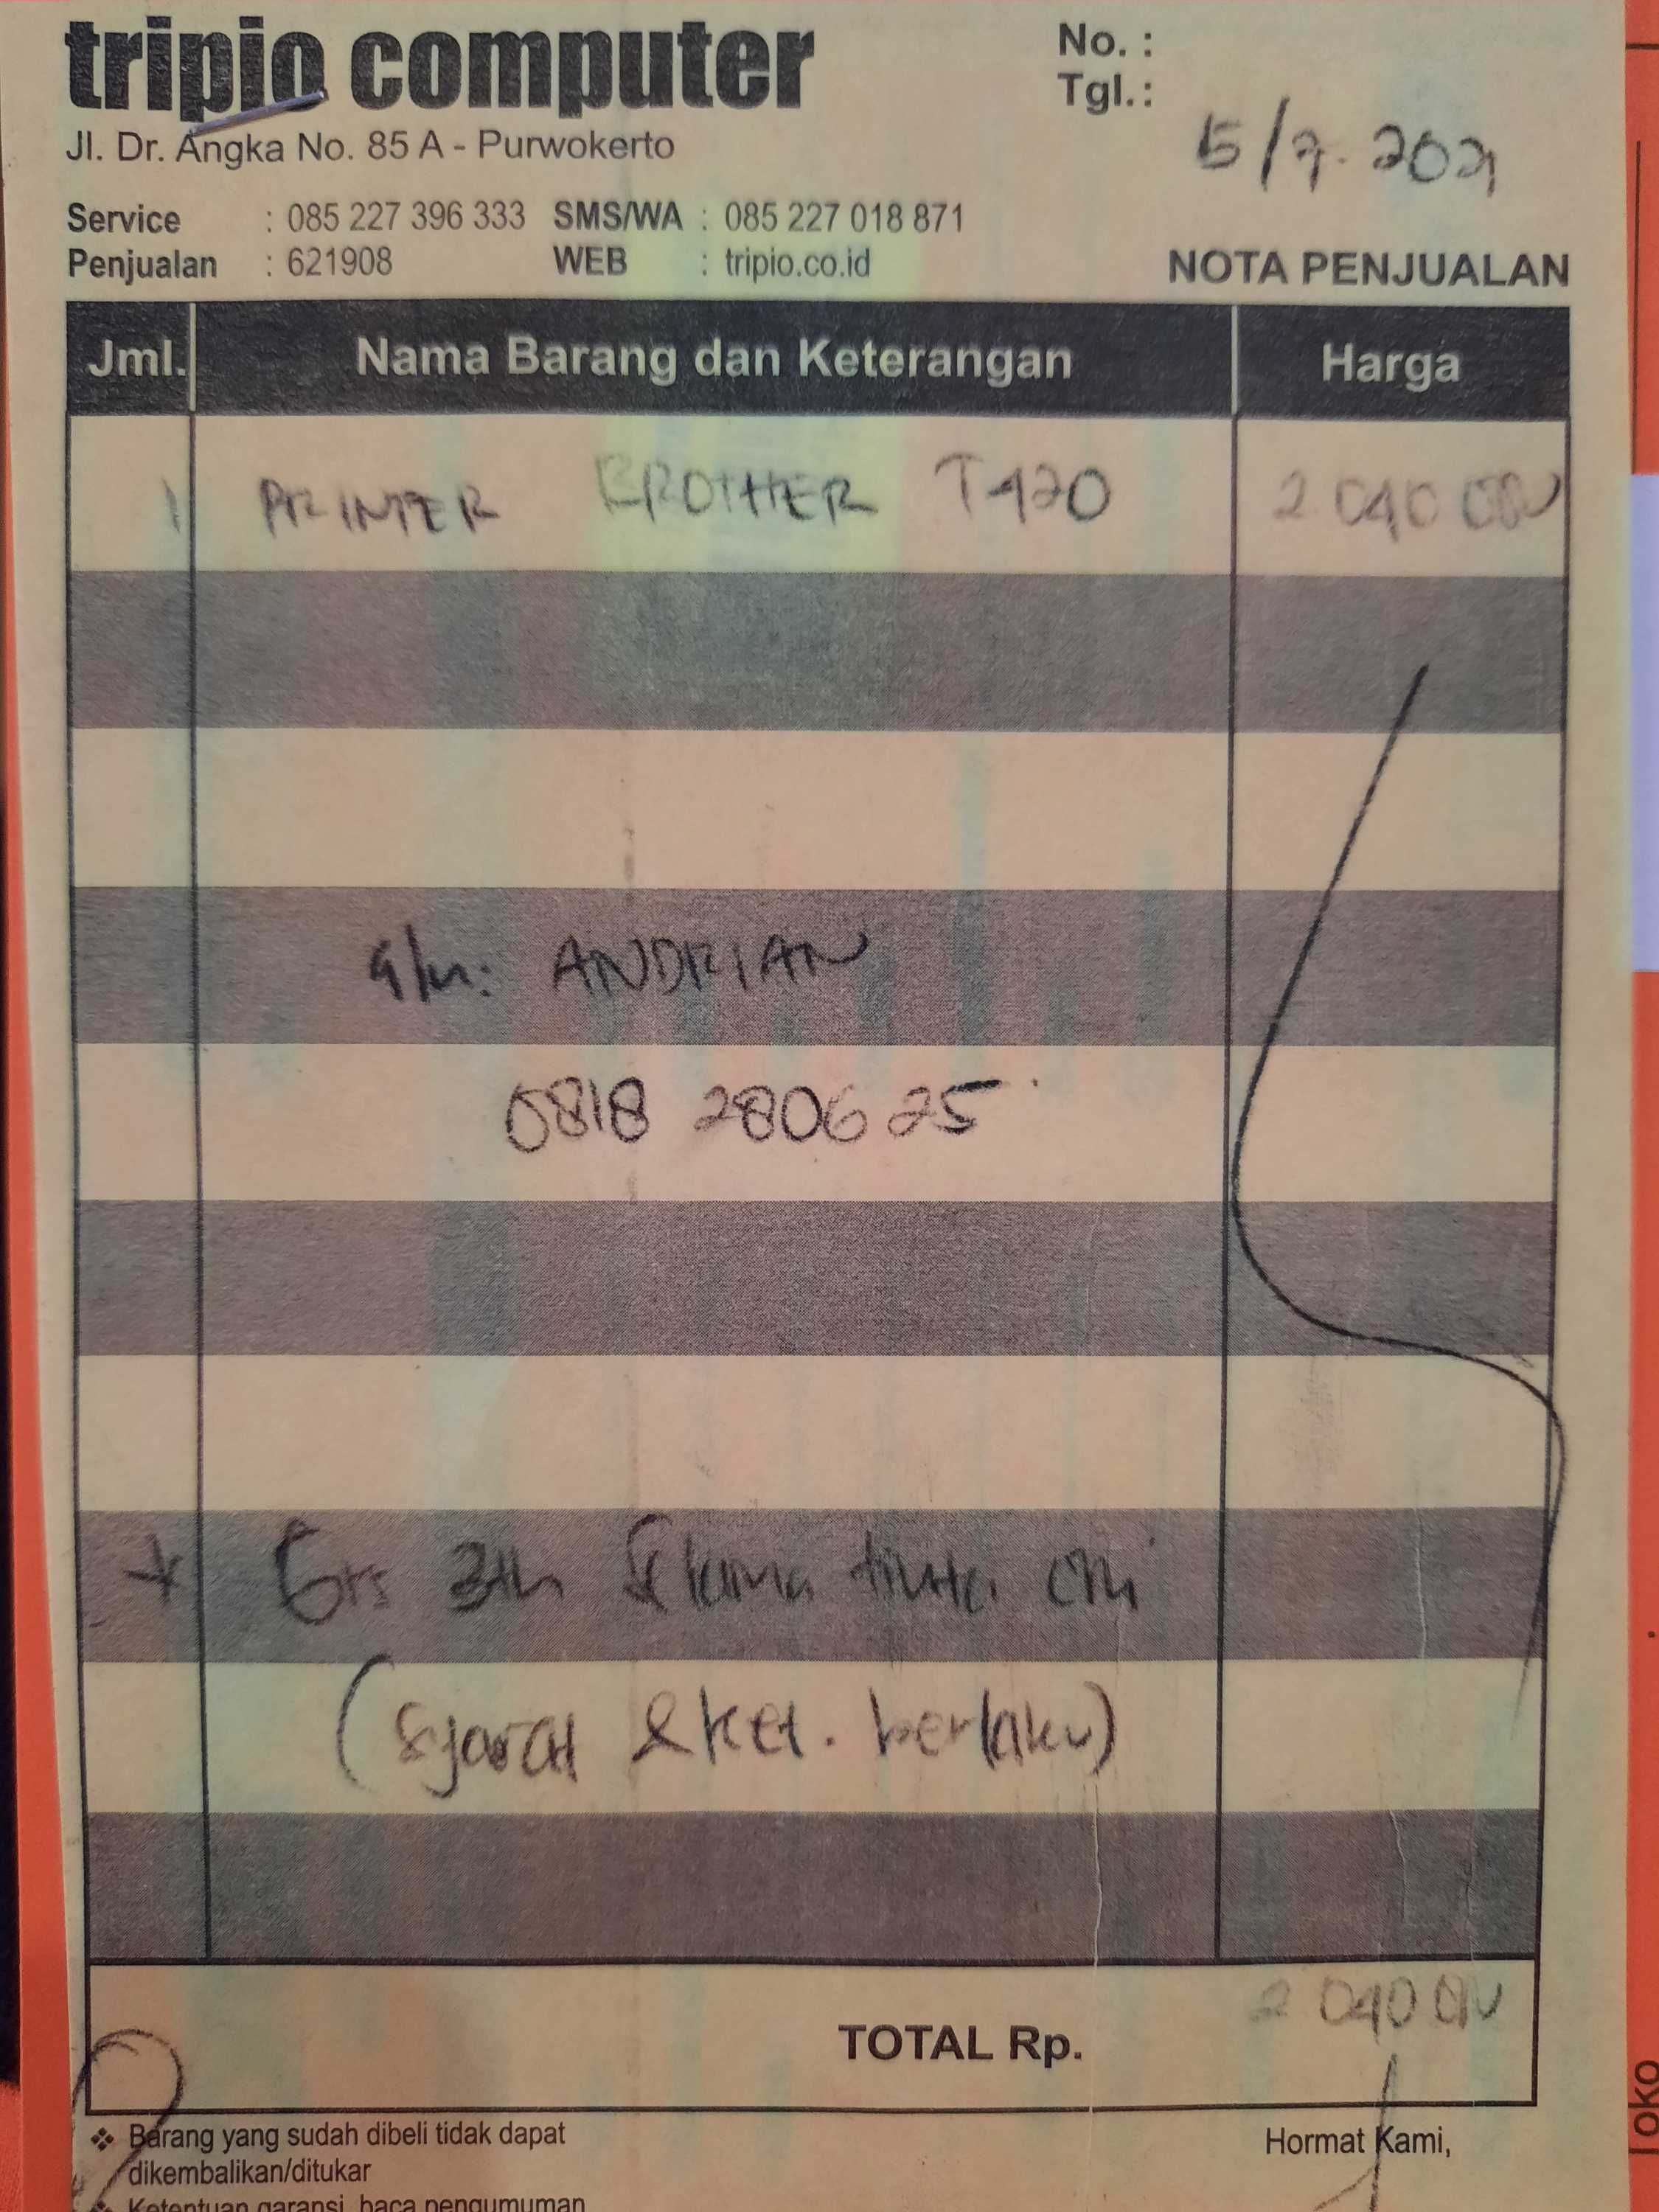 tripio computer
Jl. Dr. Angka No. 85 A - Purwokerto
No. :
Tgl. : 5/7.2021
Service : 085 227 396 333 SMS/WA : 085 227 018 871
Penjualan : 621908 WEB : tripio.co.id
NOTA PENJUALAN
Jml. Nama Barang dan Keterangan Harga
1 PRINTER BROTHER T420 2.040.000
a/n: ANDRIAN
0818 280625
* Grs 3th Selama tinta ori
(Syarat & ket. berlaku)
TOTAL Rp. 2 040 000
❖ Barang yang sudah dibeli tidak dapat
dikembalikan/ditukar
Hormat Kami,
❖ Ketentuan garansi, baca pengumuman
Toko